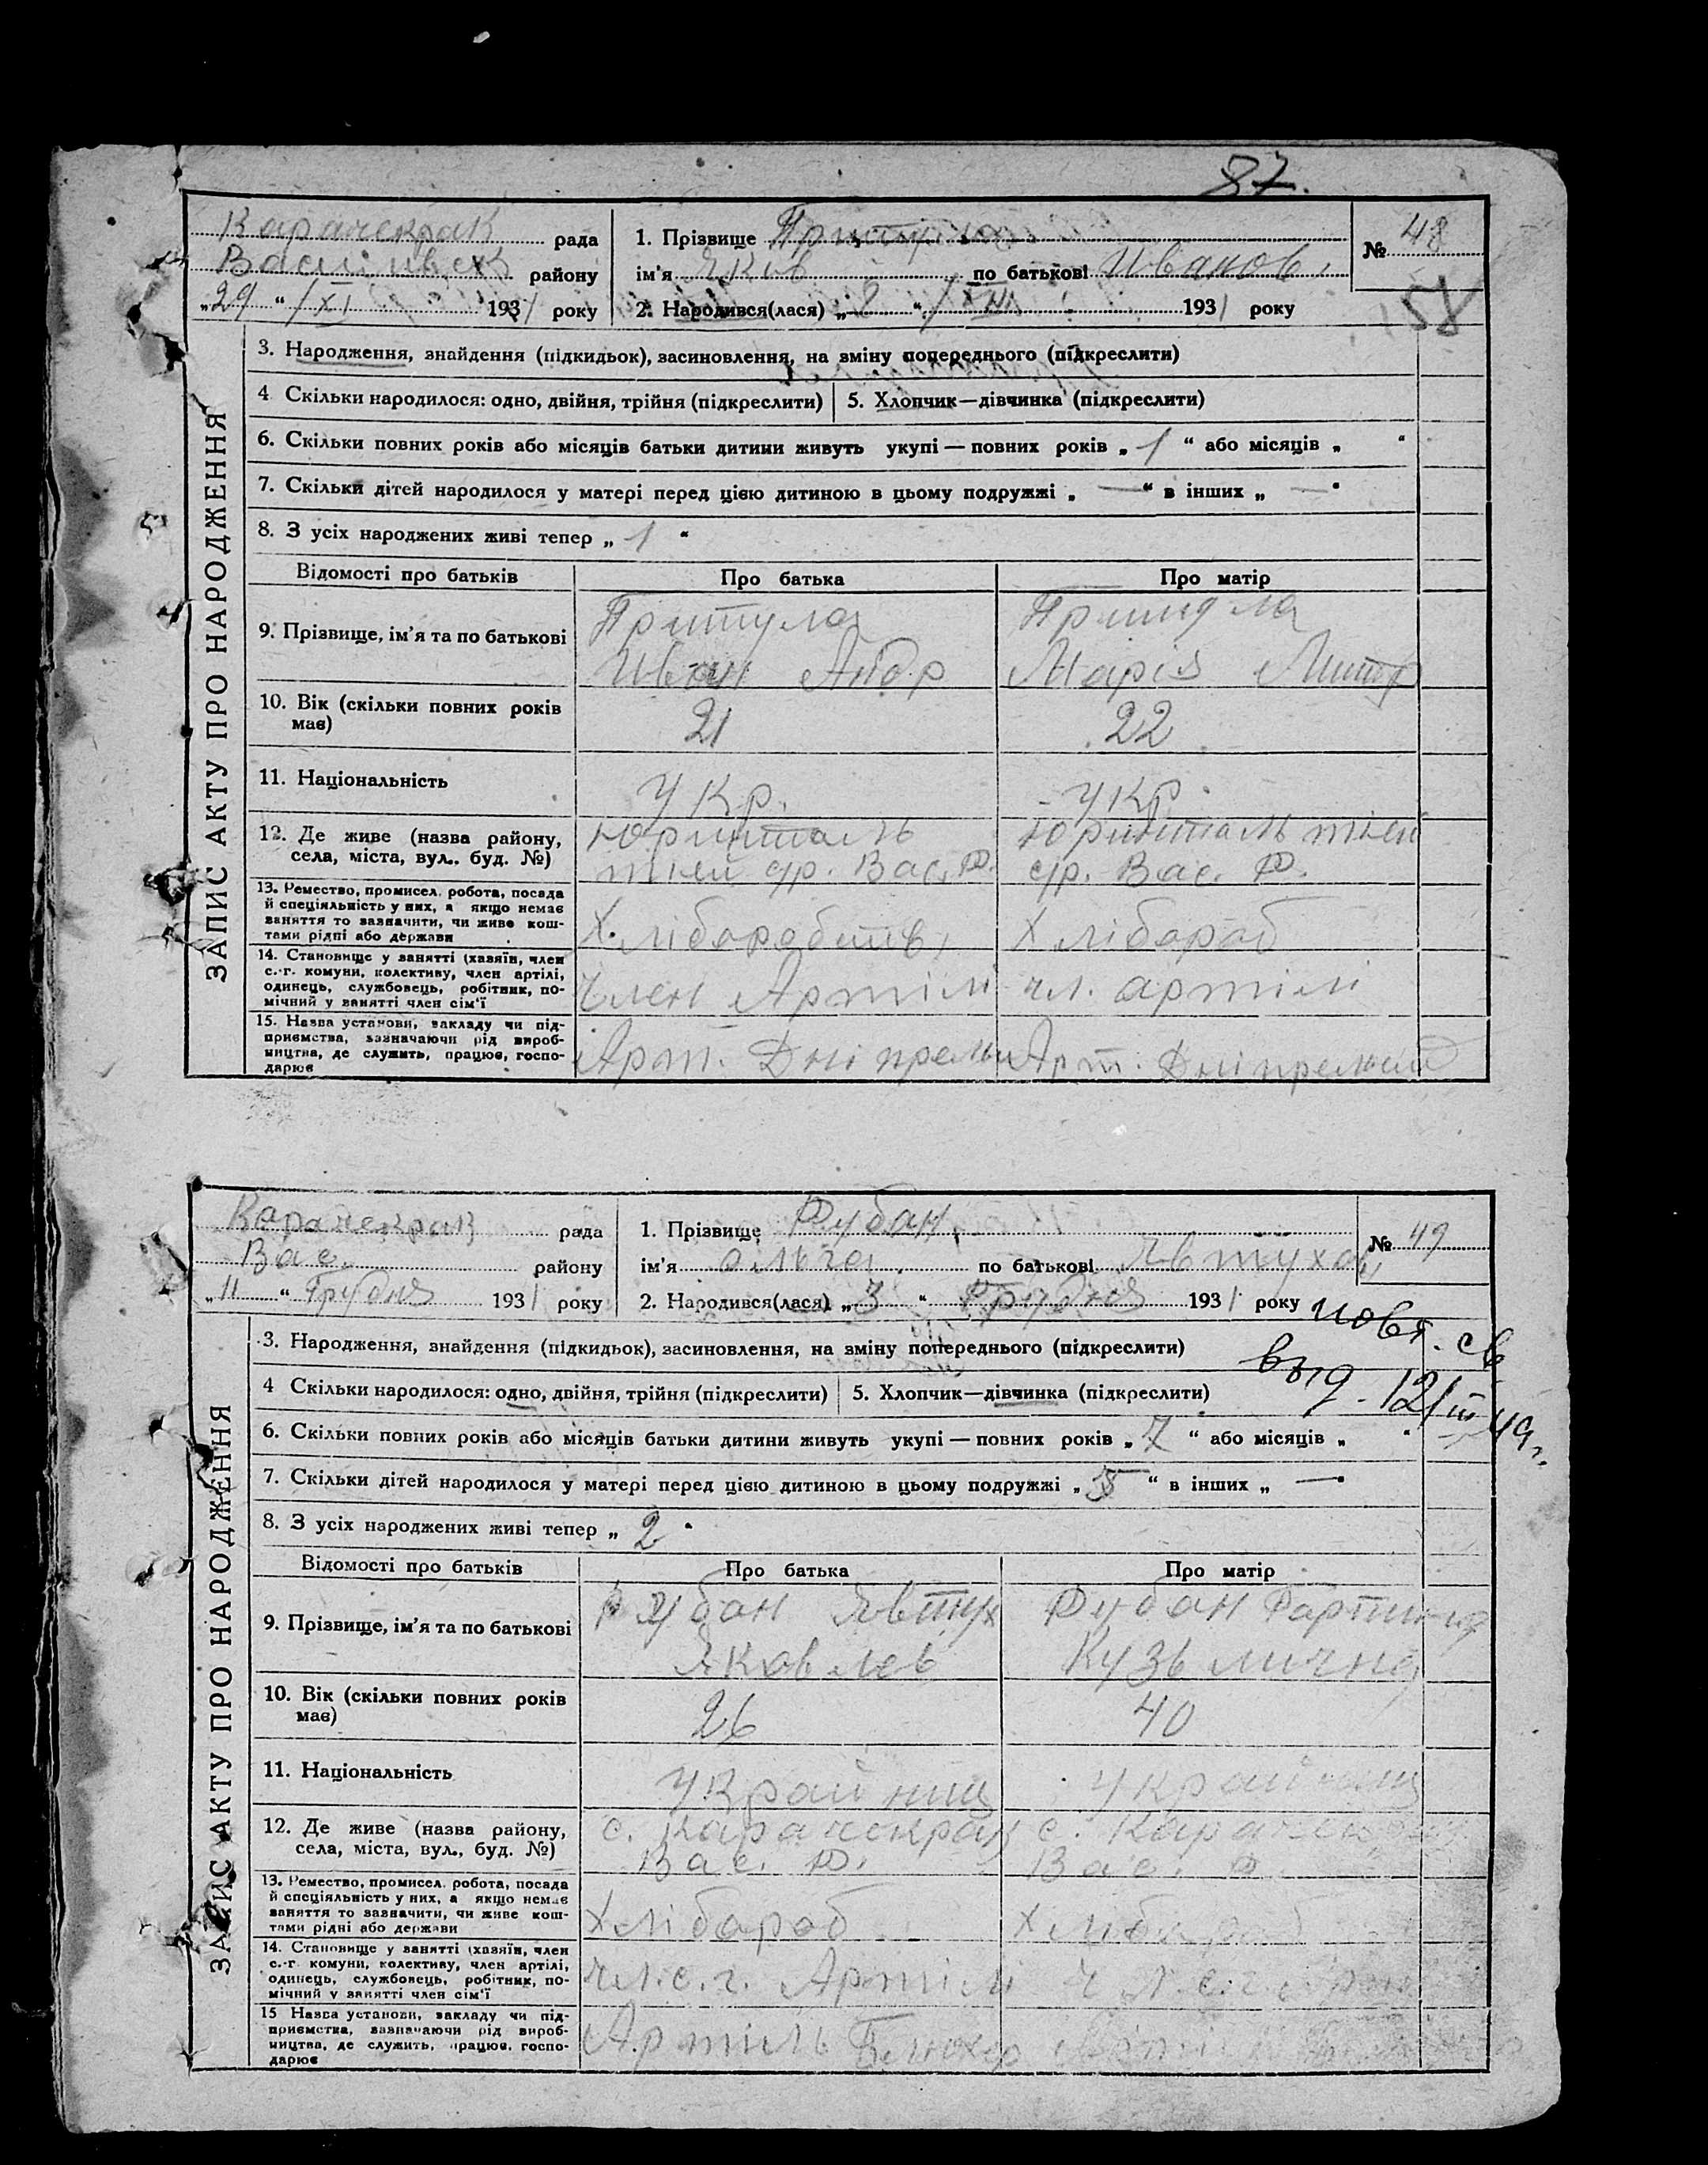 87.
Карачекрак рада
Василівськ району
„29“ /XI 1931 року
1. Прізвище Притула
ім'я Яків по батькові Иванов,
2. Народився(лася) „8“ /XII 1931 року
№ 48
158
ЗАПИС АКТУ ПРО НАРОДЖЕННЯ
3. Народження, знайдення (підкидьок), засиновлення, на зміну попереднього (підкреслити)
4 Скільки народилося: одно, двійня, трійня (підкреслити) 5. Хлопчик—дівчинка (підкреслити)
6. Скільки повних років або місяців батьки дитини живуть укупі — повних років „1“ або місяців „ “
7. Скільки дітей народилося у матері перед цією дитиною в цьому подружжі „—“ в інших „—“
8. З усіх народжених живі тепер „1“
Відомості про батьків Про батька Про матір
9. Прізвище, ім'я та по батькові Притула Притула
Иван Андр Марія Митр
10. Вік (скільки повних років має) 21 22
11. Національність Укр. Укр.
12. Де живе (назва району, села, міста, вул., буд. №)
с/р. Вас. Р. с/р. Вас. Р.
13. Ремество, промисел, робота, посада
й спеціяльність у них, а якщо немає
заняття то зазначити, чи живе кош-
тами рідні або держави
Хліборобств, Хлібороб
14. Становище у занятті (хазяїн, член
с.-г. комуни, колективу, член артілі,
одинець, службовець, робітник, по-
мічний у занятті член сім'ї
Член Артілі чл. артілі
15. Назва установи, закладу чи під-
приємства, зазначаючи рід вироб-
ництва, де служить, працює, госпо-
дарює
Арт. Арт.
Карачекрак рада
Вас. району
„11“ Грудня 1931 року
1. Прізвище Рубан
ім'я Ольга по батькові Явтухов,
2. Народився(лася) „3“ Грудня 1931 року
№ 49
повт. св
выд. 12/III 49г.
ЗАПИС АКТУ ПРО НАРОДЖЕННЯ
3. Народження, знайдення (підкидьок), засиновлення, на зміну попереднього (підкреслити)
4 Скільки народилося: одно, двійня, трійня (підкреслити) 5. Хлопчик—дівчинка (підкреслити)
6. Скільки повних років або місяців батьки дитини живуть укупі — повних років „7“ або місяців „ “
7. Скільки дітей народилося у матері перед цією дитиною в цьому подружжі „5“ в інших „—“
8. З усіх народжених живі тепер „2“
Відомості про батьків Про батька Про матір
9. Прізвище, ім'я та по батькові Рубан Явтух Рубан
Яковлев Кузьмична
10. Вік (скільки повних років має) 26 40
11. Національність Украйниц Украйниц
12. Де живе (назва району, села, міста, вул., буд. №)
с. Карачекрак с. Карачекрак
Вас. Р. Вас. Р
13. Ремество, промисел, робота, посада
й спеціяльність у них, а якщо немає
заняття то зазначити, чи живе кош-
тами рідні або держави
Хлібороб Хлібороб
14. Становище у занятті (хазяїн, член
с.-г. комуни, колективу, член артілі,
одинець, службовець, робітник, по-
мічний у занятті член сім'ї
Чл. с. г. Артілі Чл. с. г.
15 Назва установи, закладу чи під-
приємства, зазначаючи рід вироб-
ництва, де служить, працює, госпо-
дарює
Артиль Блюхер